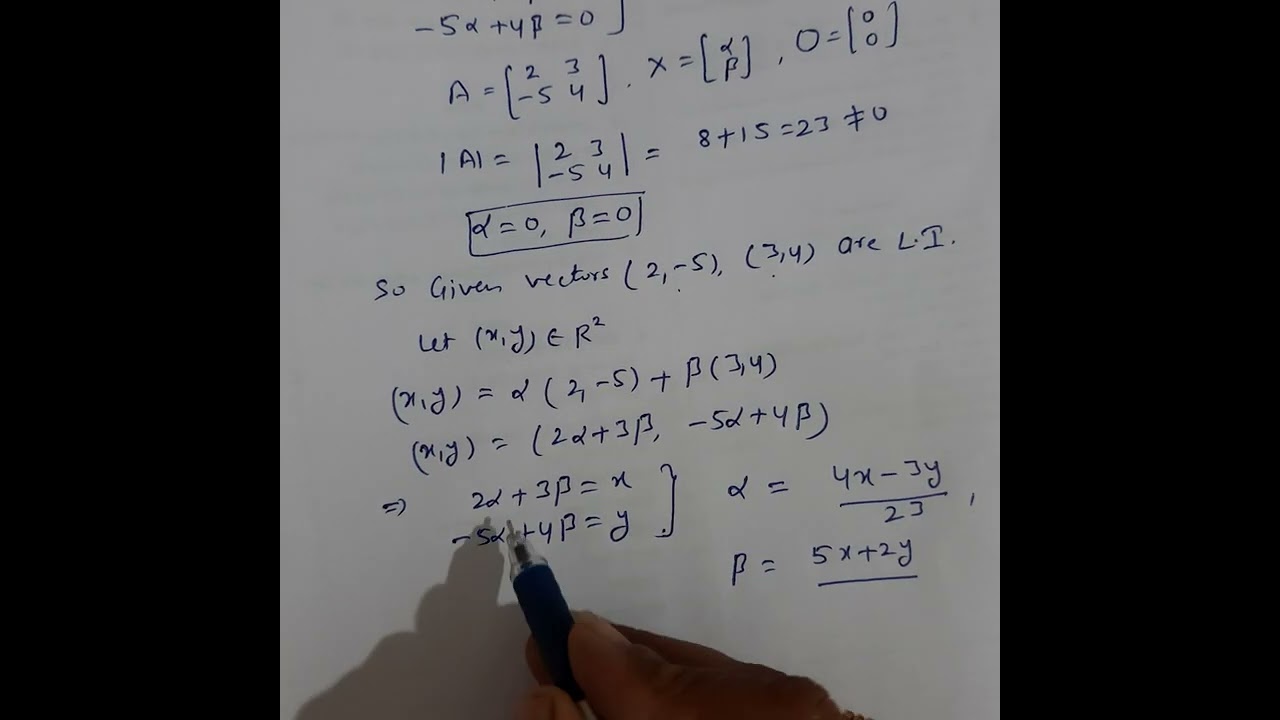 -5α+4β=0 ]
A = [2 3 -5 4] . X = [α β] , O = [0 0]
|A| = |2 3 -5 4| = 8+15=23 ≠0
α=0, β=0
So Given vectors (2,-5), (3,4) are L.I.
Let (x,y) ∈ R²
(x,y) = α(2,-5) + β(3,4)
(x,y) = (2α+3β, -5α+4β)
⇒ 2α+3β=x
-5α+4β=y }
α = 4x-3y / 23 ,
β = 5x+2y